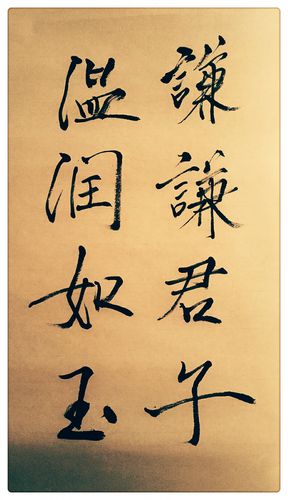 謙謙君子
温润如玉